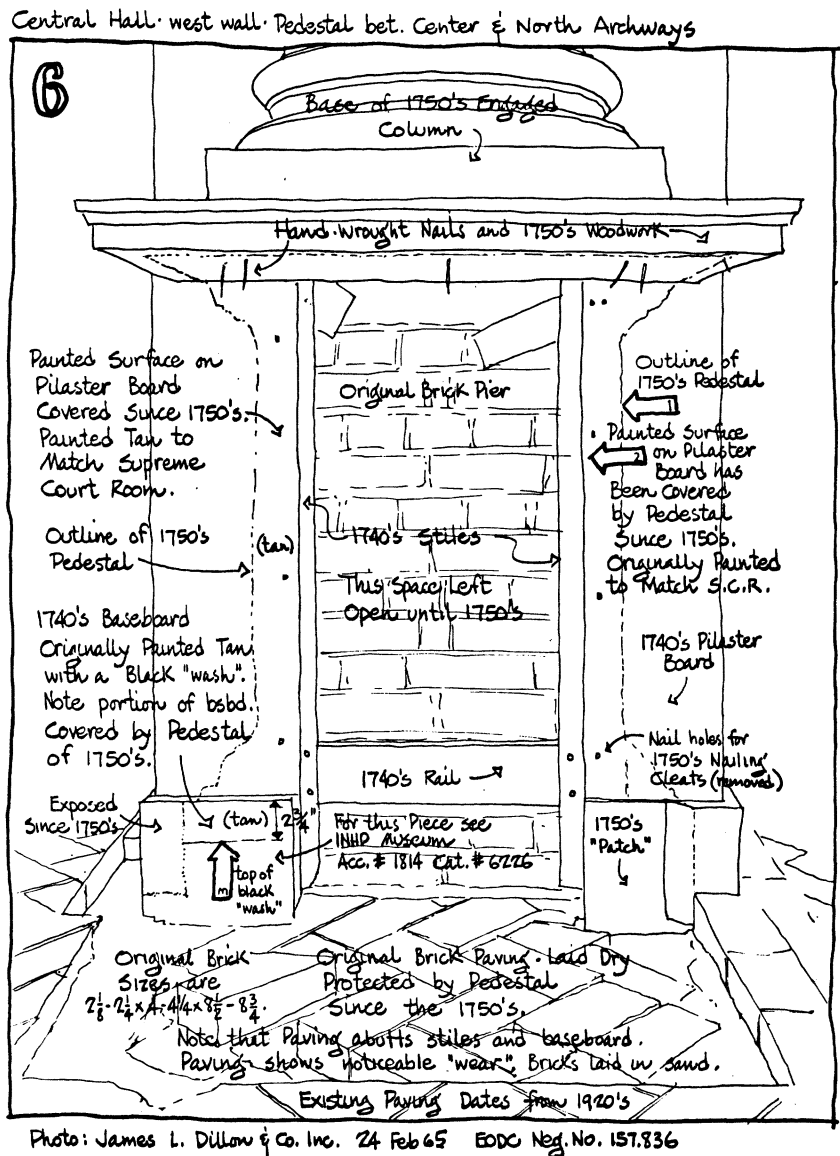 Central Hall · west wall · Pedestal bet. Center & North Archways
6
Base of 1750's Engaged
Column
Hand-Wrought Nails and 1750's Woodwork
Painted Surface on
Pilaster Board
Covered Since 1750's.
Painted Tan to
Match Supreme
Court Room.
Outline of 1750's
Pedestal
(tan)
1740's Baseboard
Originally Painted Tan
with a Black "wash".
Note portion of bsbd.
Covered by Pedestal
of 1750's.
Exposed
Since 1750's
(tan)
2 3/4"
m
top of
black
"wash"
Original Brick Pier
1740's Stiles
This Space Left
Open until 1750's
1740's Rail
For this Piece see
INHP Museum
Acc. # 1814 Cat. # 6226
Outline of
1750's Pedestal
1
Painted Surface
2
on Pilaster
Board has
Been Covered
by Pedestal
Since 1750's.
Originally Painted
to Match S.C.R.
1740's Pilaster
Board
Nail holes for
1750's Nailing
Cleats (removed)
1750's
"Patch"
Original Brick
Sizes are
2 1/8 - 2 1/4 × 4 - 4 1/4 × 8 1/2 - 8 3/4.
Original Brick Paving · Laid Dry
Protected by Pedestal
Since the 1750's.
Note that Paving abutts stiles and baseboard.
Paving shows noticeable "wear". Bricks laid in sand.
Existing Paving Dates from 1920's
Photo: James L. Dillon & Co. Inc. 24 Feb 65 EODC Neg. No. 157.836